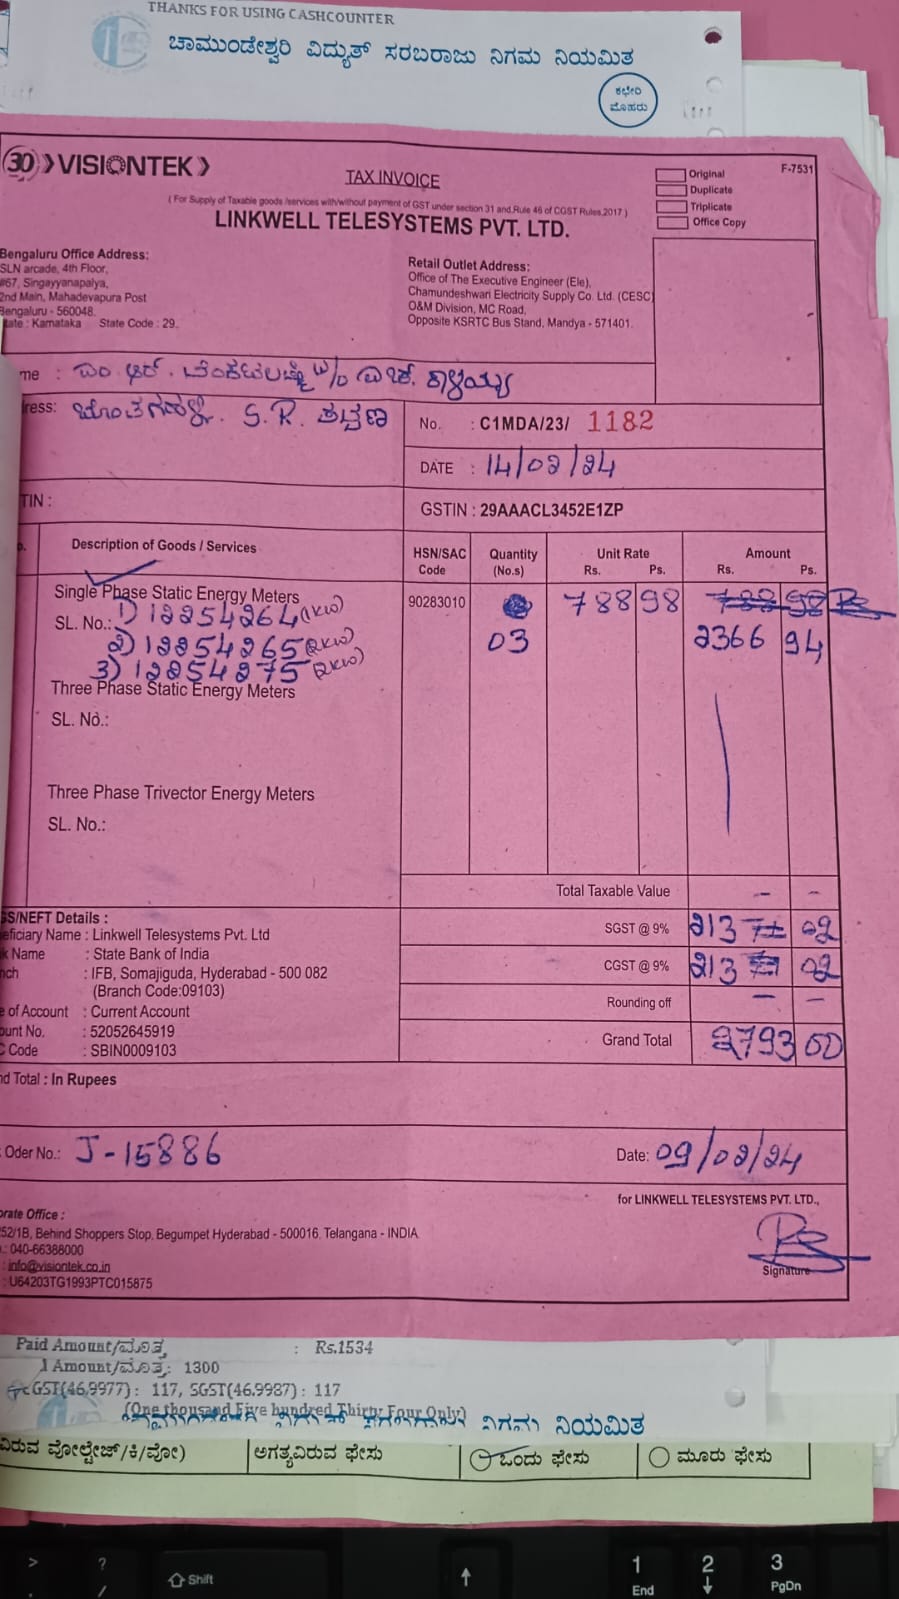 THANKS FOR USING CASHCOUNTER
ಚಾಮುಂಡೇಶ್ವರಿ ವಿದ್ಯುತ್ ಸರಬರಾಜು ನಿಗಮ ನಿಯಮಿತ
ಕಛೇರಿ
ಮೊಹರು
30 VISIONTEK
TAX INVOICE
Original
F-7531
Duplicate
Triplicate
Office Copy
( For Supply of Taxable goods /services with/without payment of GST under section 31 and Rule 46 of CGST Rules,2017 )
LINKWELL TELESYSTEMS PVT. LTD.
Bengaluru Office Address:
SLN arcade, 4th Floor,
#67, Singayyanapalya,
2nd Main, Mahadevapura Post
Bengaluru - 560048.
State : Karnataka State Code : 29.
Retail Outlet Address:
Office of The Executive Engineer (Ele),
Chamundeshwari Electricity Supply Co. Ltd. (CESC)
O&M Division, MC Road,
Opposite KSRTC Bus Stand, Mandya - 571401.
me : ಎಂ ಆರ್. ವೆಂಕಟಲಕ್ಷ್ಮಿ w/o ಎಚ್. ಕಾಳಯ್ಯ
ress: S.R. ಪಟ್ಟಣ
No. : C1MDA/23/ 1182
DATE : 14/02/24
TIN :
GSTIN : 29AAACL3452E1ZP
Description of Goods / Services
HSN/SAC Code
Quantity (No.s)
Unit Rate
Rs. Ps.
Amount
Rs. Ps.
Single Phase Static Energy Meters
90283010
788 98
788 98
SL. No.: 1) 12254264 (1KW)
2) 12254265 (2KW)
03
2366 94
3) 12254275 (2KW)
Three Phase Static Energy Meters
SL. No.:
Three Phase Trivector Energy Meters
SL. No.:
Total Taxable Value - -
GS/NEFT Details :
eficiary Name : Linkwell Telesystems Pvt. Ltd
SGST @ 9% 213 02
k Name : State Bank of India
nch : IFB, Somajiguda, Hyderabad - 500 082
CGST @ 9% 213 02
(Branch Code:09103)
e of Account : Current Account
Rounding off - -
ount No. : 52052645919
C Code : SBIN0009103
Grand Total 2793 00
nd Total : In Rupees
Oder No.: J-15886
Date: 09/02/24
for LINKWELL TELESYSTEMS PVT. LTD.,
orate Office :
52/1B, Behind Shoppers Stop, Begumpet Hyderabad - 500016. Telangana - INDIA
.: 040-66388000
: info@visiontek.co.in
: U64203TG1993PTC015875
Signature
Paid Amount/ಮೊತ್ತ : Rs.1534
Amount/ಮೊತ್ತ: 1300
GST(46.9977) : 117, SGST(46.9987) : 117
(One thousand Five hundred Thirty Four Only)
ನಿಗಮ ನಿಯಮಿತ
ವಿರುವ ವೋಲ್ಟೇಜ್/ಕಿ/ವೋ)
ಅಗತ್ಯವಿರುವ ಫೇಸು
ಒಂದು ಫೇಸು
ಮೂರು ಫೇಸು
> ? Shift ↑ 1 2 3
. / End ↓ PgDn